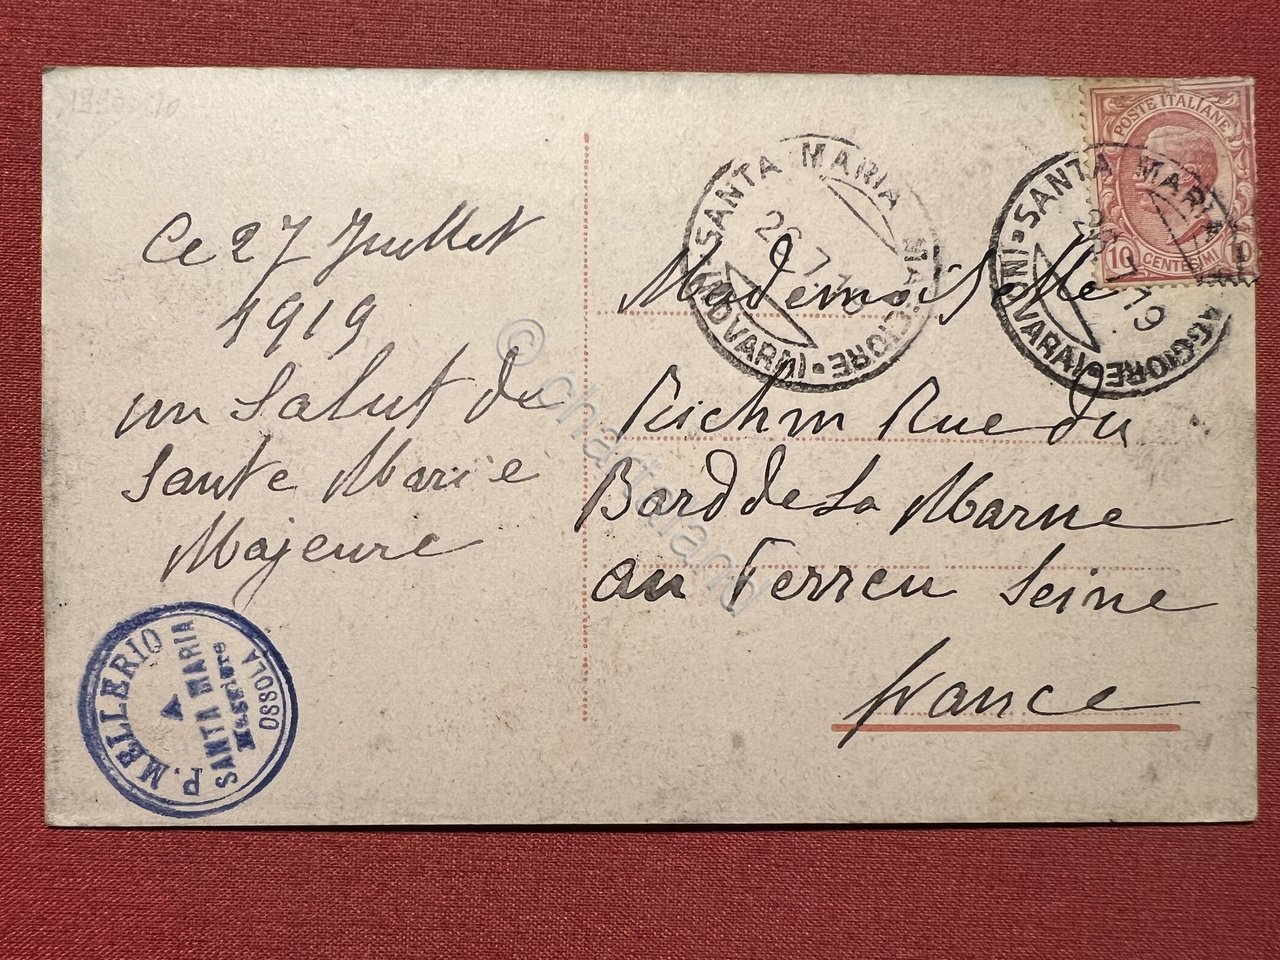 Ce 27 Juillet
1919
un Salut de
Sante Marie
Majeure
P. MELLERIO
A
SANTA MARIA
Maggiore
OSSOLA
SANTA MARIA MAGGIORE (NOVARA)
26.7.19
SANTA MARIA MAGGIORE (NOVARA)
26.7.19
POSTE ITALIANE
10
CENTESIMI
10
Mademoiselle
Richm Rue du
Bard de La Marne
au Perreu Seine
France
© chartaland